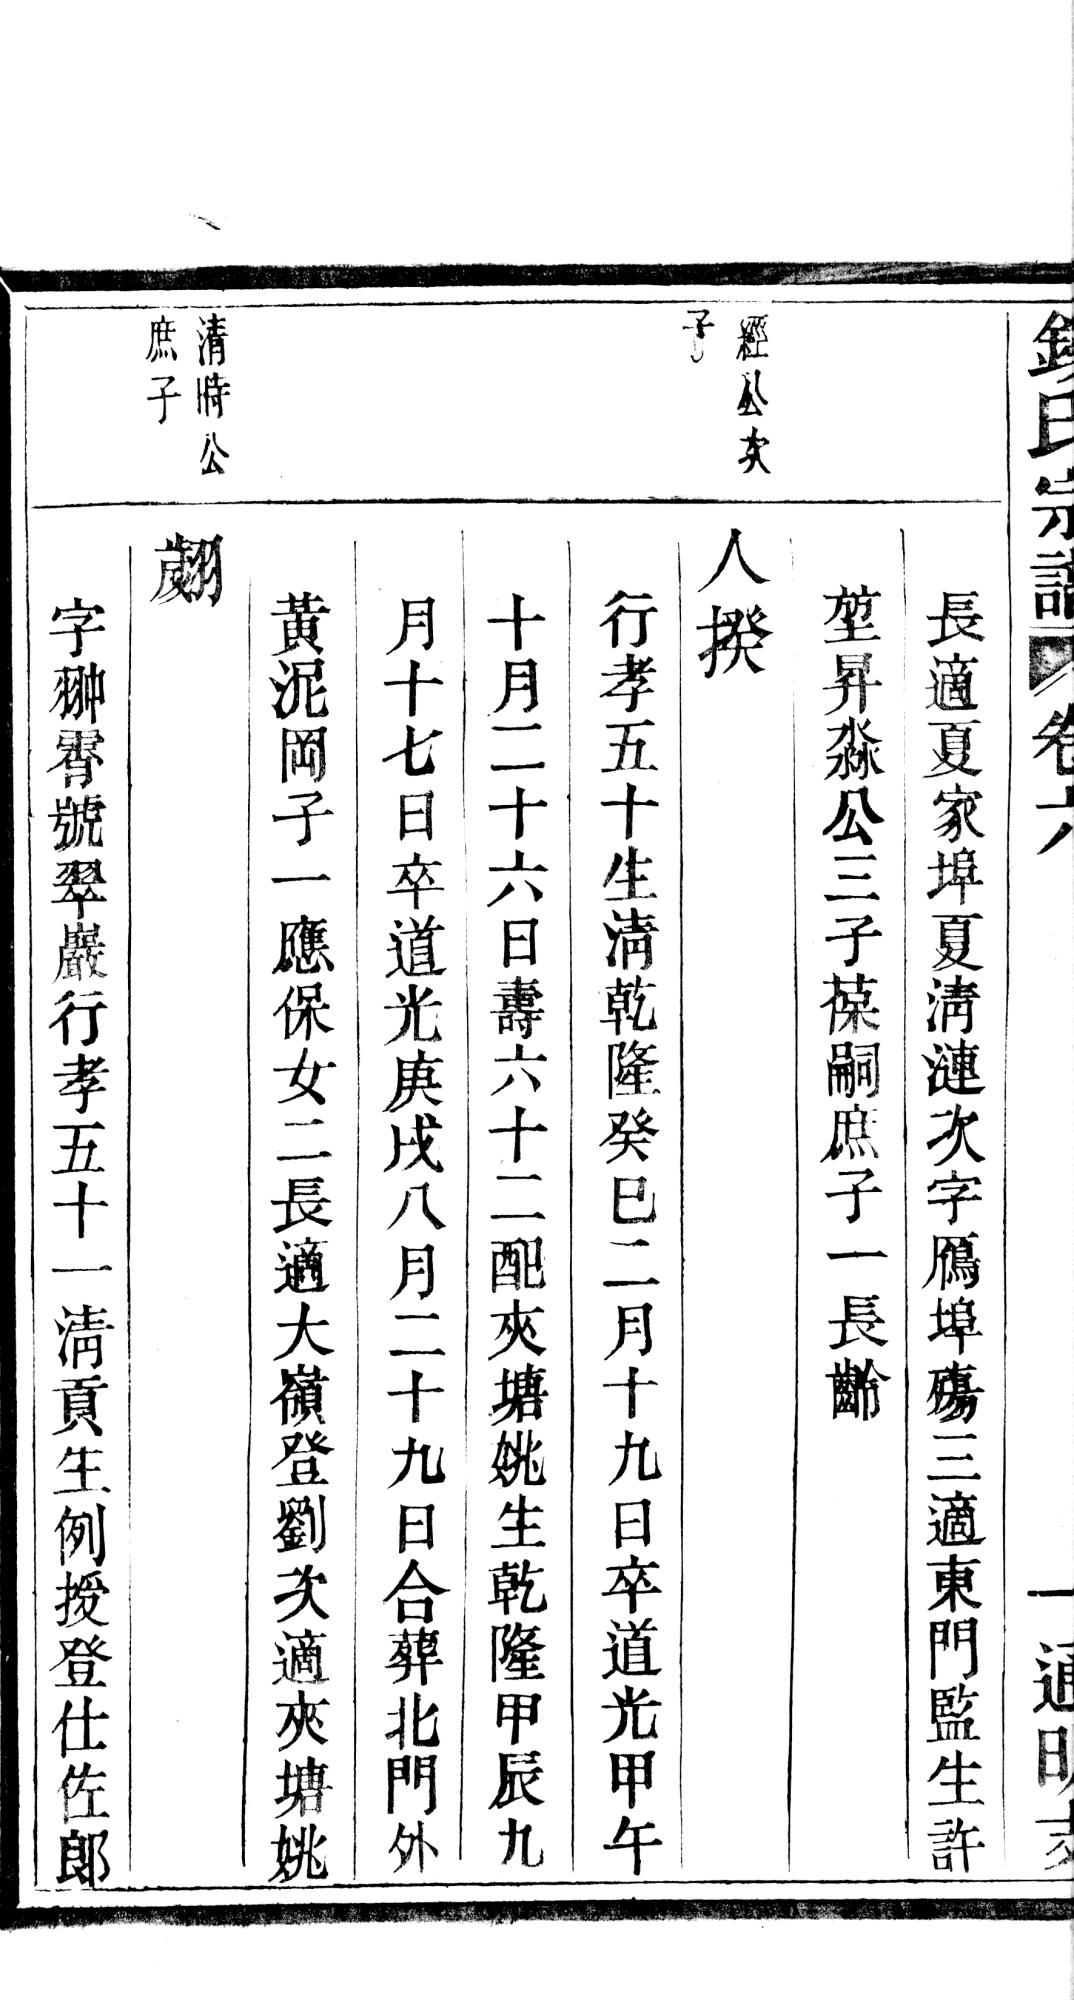 錢氏宗譜 卷六 一 通明支
長適夏家埠夏淸漣次字鴈埠殤三適東門監生許
堃昇淼公三子葆嗣庶子一長齡
經公次子
人揆
行孝五十生淸乾隆癸巳二月十九日卒道光甲午
十月二十六日壽六十二配夾塘姚生乾隆甲辰九
月十七日卒道光庚戌八月二十九日合葬北門外
黃泥岡子一應保女二長適大嶺登劉次適夾塘姚
清時公庶子
翽
字翀霄號翠巖行孝五十一淸貢生例授登仕佐郎